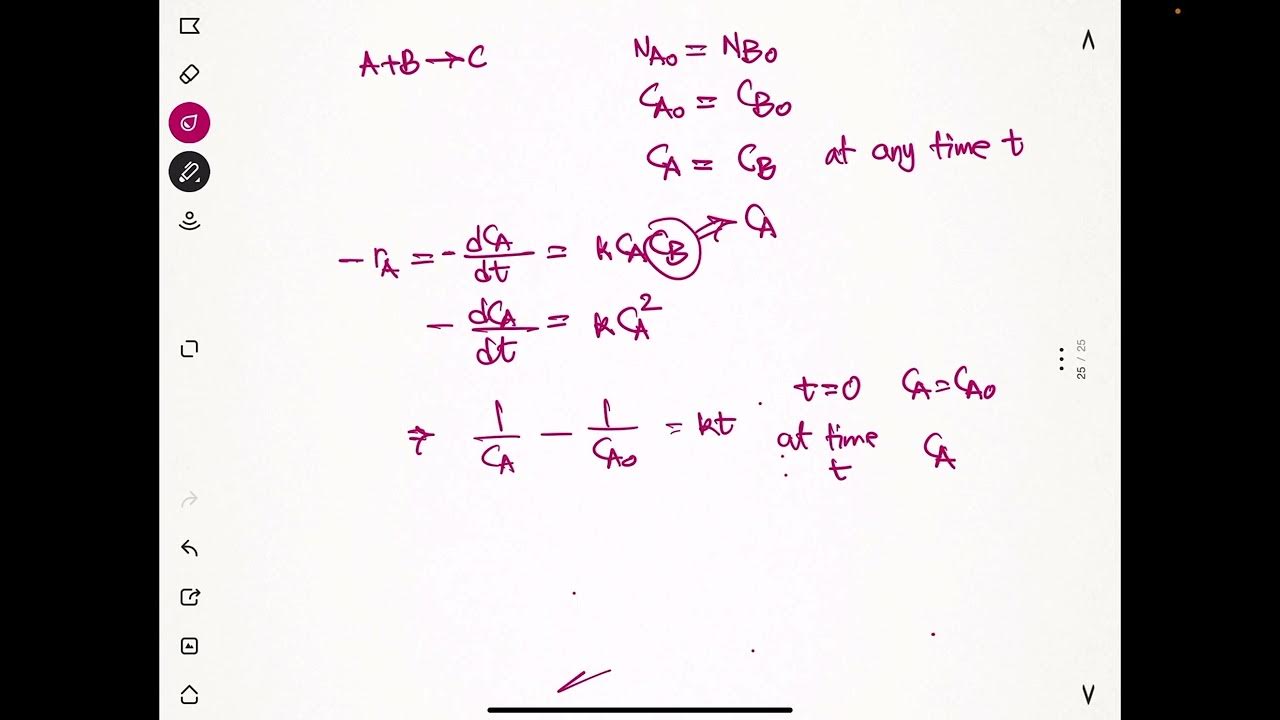 A+B→C
N_A0 = N_B0
C_A0 = C_B0
C_A = C_B at any time t
-r_A = -dC_A/dt = kC_A C_B ⇒ C_A
-dC_A/dt = kC_A^2
⇒ 1/C_A - 1/C_A0 = kt
t=0 C_A=C_A0
at time t C_A
25 / 25